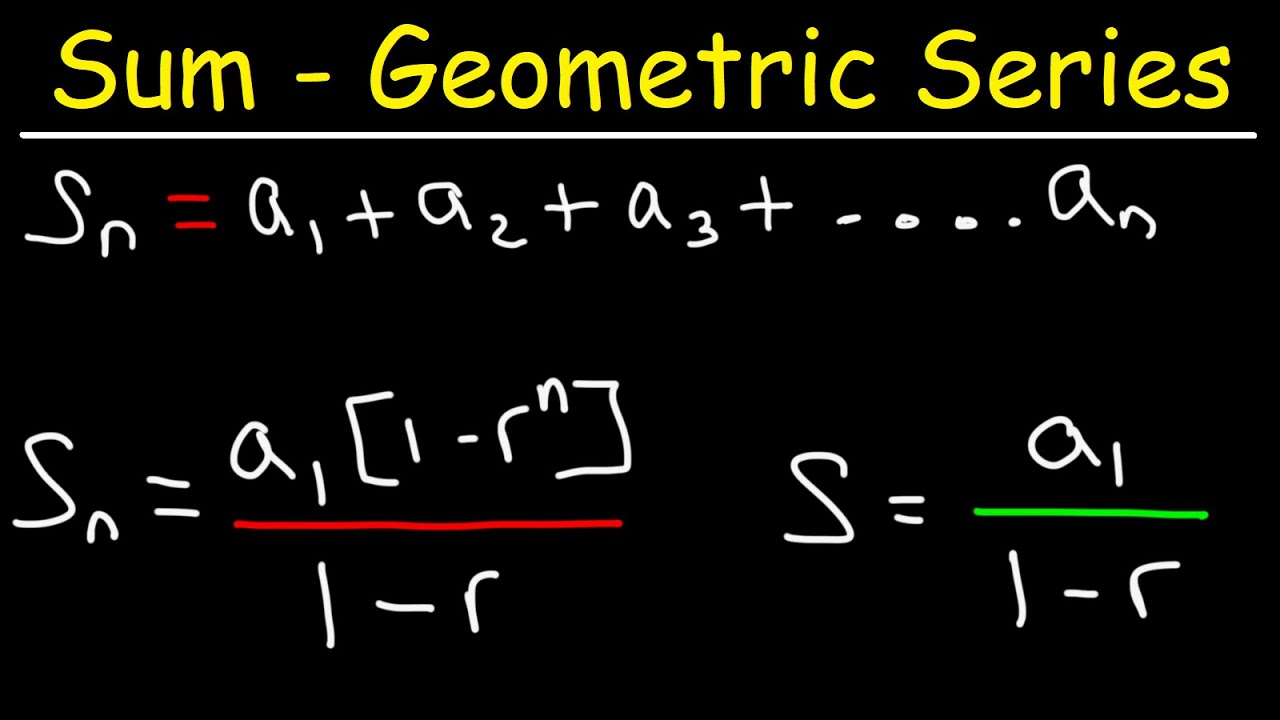 Sum - Geometric Series
Sₙ = a₁ + a₂ + a₃ + -.... aₙ
Sₙ = a₁[1-rⁿ] / 1-r
S = a₁ / 1-r